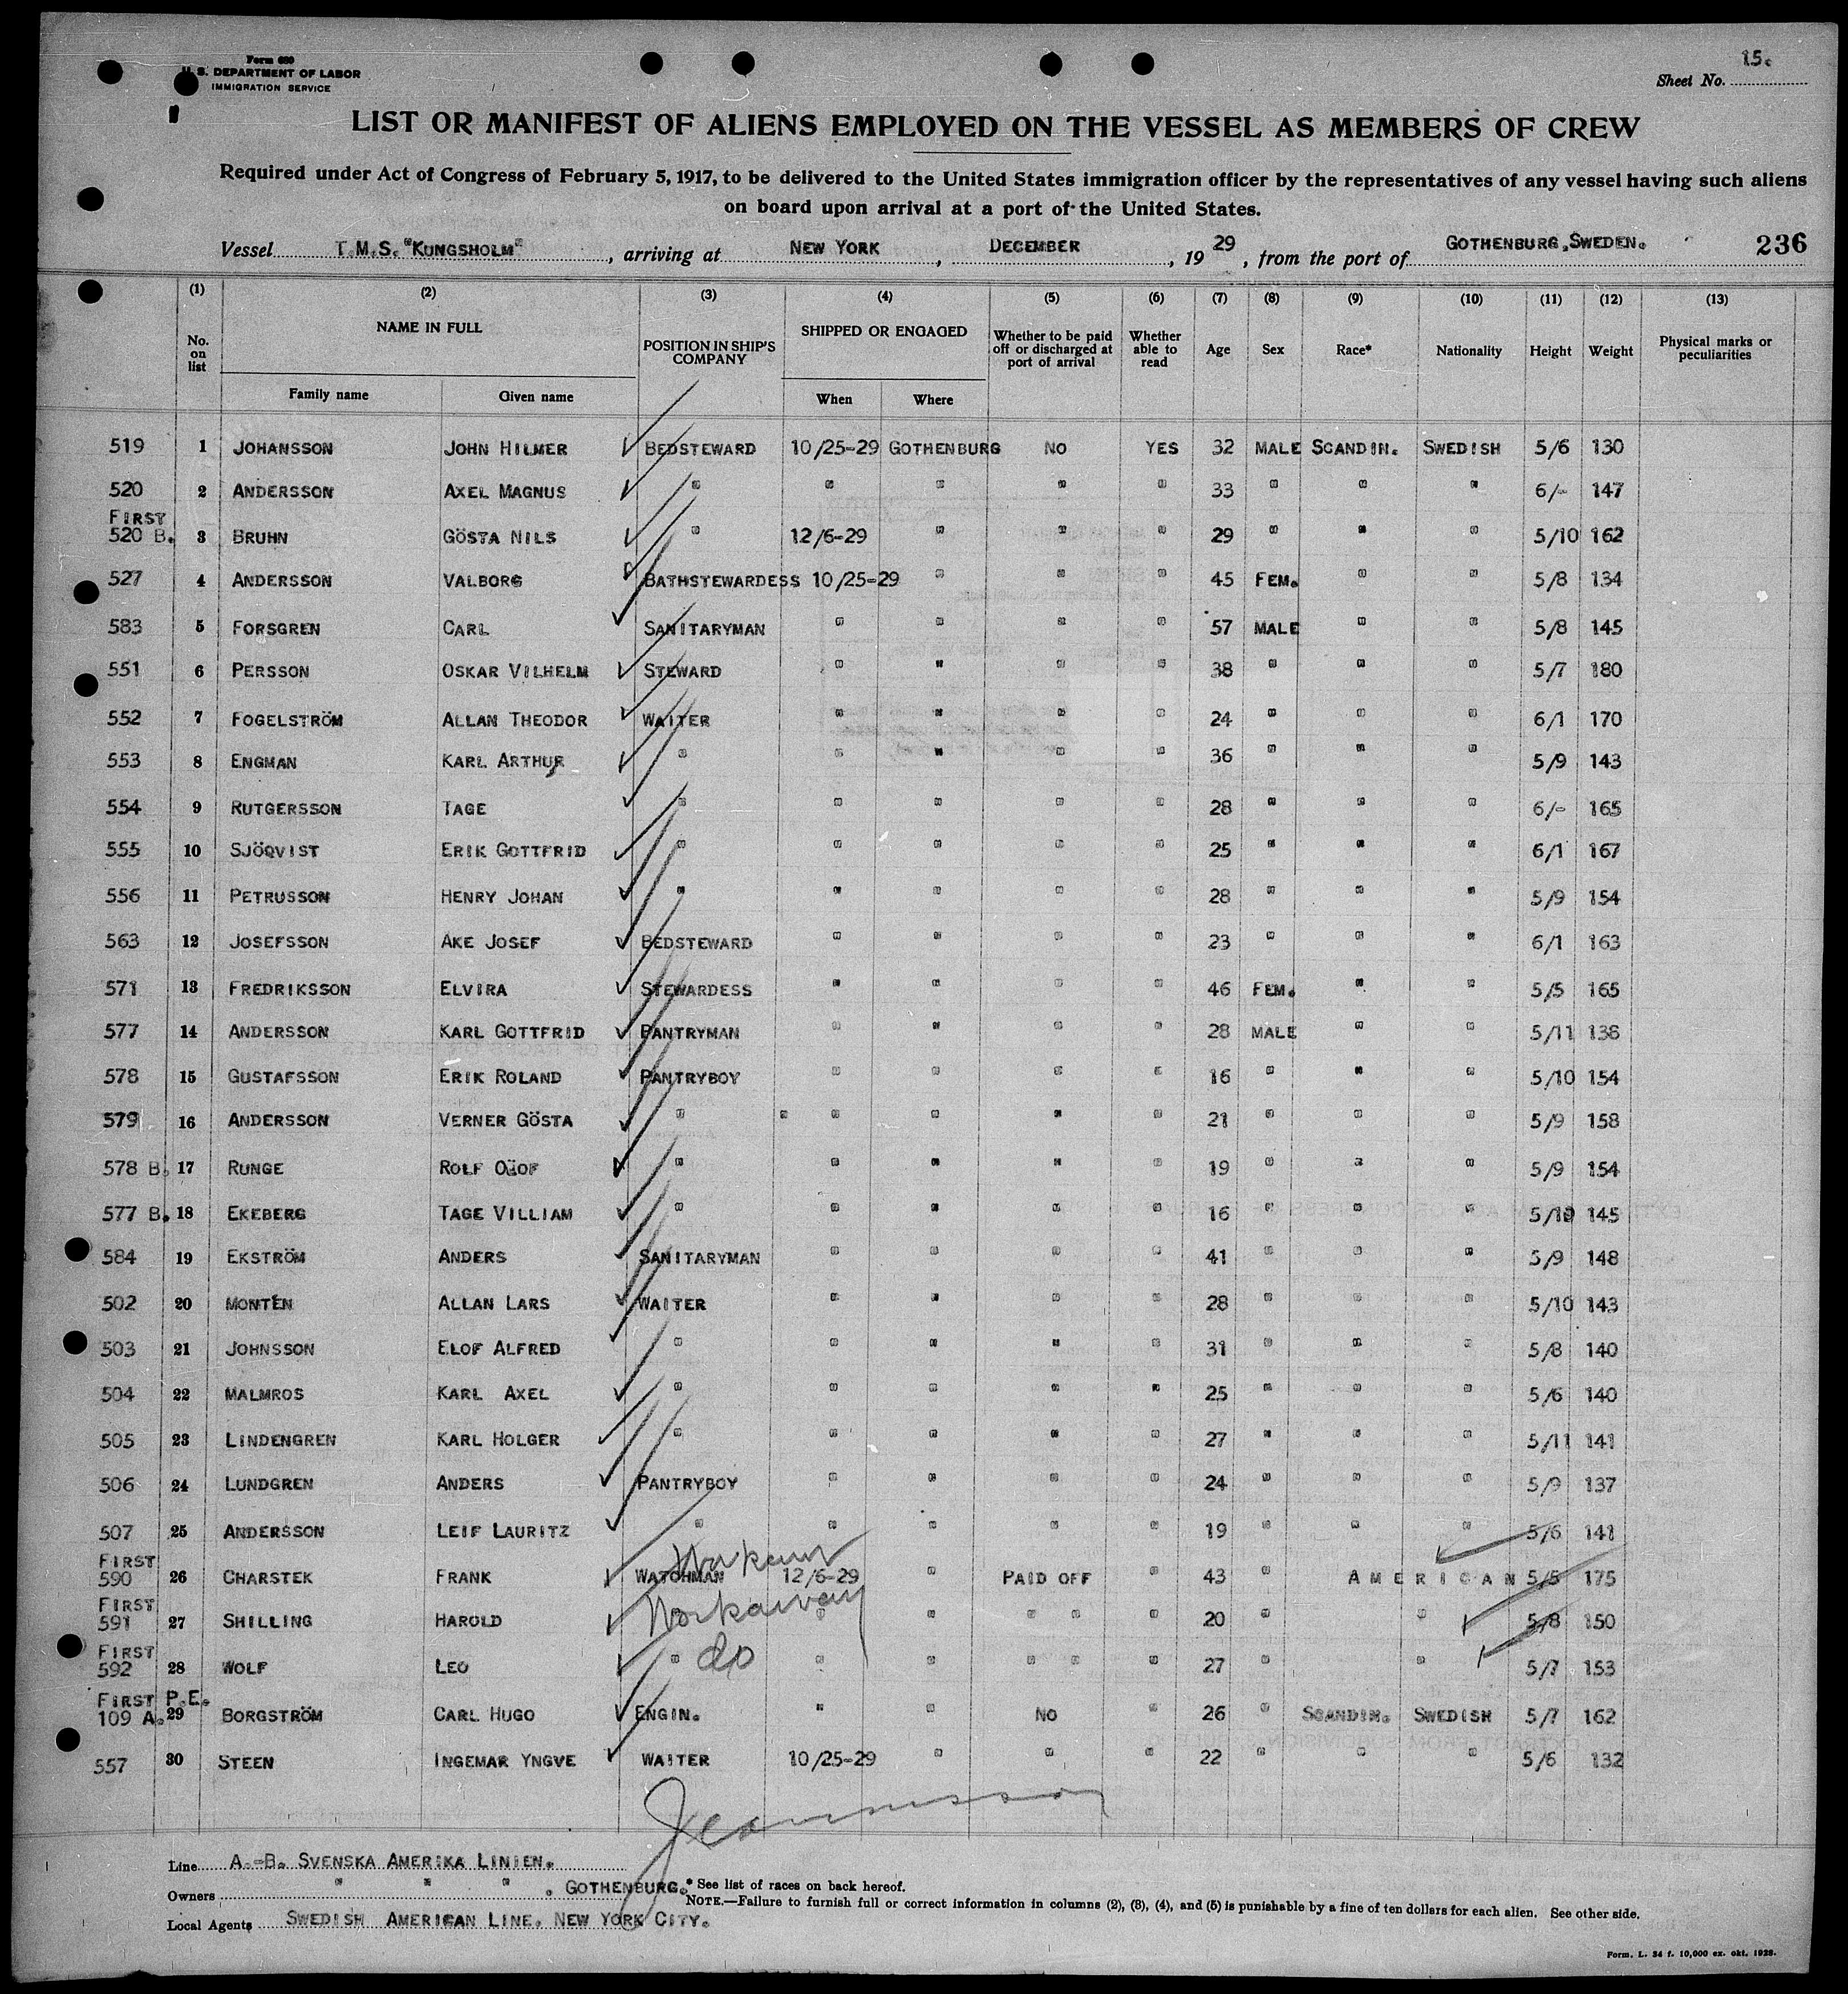 Form 680
U. S. DEPARTMENT OF LABOR
IMMIGRATION SERVICE
15.
Sheet No.
LIST OR MANIFEST OF ALIENS EMPLOYED ON THE VESSEL AS MEMBERS OF CREW
Required under Act of Congress of February 5, 1917, to be delivered to the United States immigration officer by the representatives of any vessel having such aliens
on board upon arrival at a port of the United States.
Vessel T.M.S. "KUNGSHOLM", arriving at NEW YORK, DECEMBER, 1929, from the port of GOTHENBURG, SWEDEN. 236
(1) (2) (3) (4) (5) (6) (7) (8) (9) (10) (11) (12) (13)
No. on list NAME IN FULL POSITION IN SHIP'S COMPANY SHIPPED OR ENGAGED Whether to be paid off or discharged at port of arrival Whether able to read Age Sex Race* Nationality Height Weight Physical marks or peculiarities
Family name Given name When Where
519 1 JOHANSSON JOHN HILMER BEDSTEWARD 10/25-29 GOTHENBURG NO YES 32 MALE SCANDIN. SWEDISH 5/6 130
520 2 ANDERSSON AXEL MAGNUS " " " " " 33 " " " 6/- 147
FIRST
520 B. 3 BRUHN GÖSTA NILS " 12/6-29 " " " 29 " " " 5/10 162
527 4 ANDERSSON VALBORG BATHSTEWARDESS 10/25-29 " " " 45 FEM. " " 5/8 134
583 5 FORSGREN CARL SANITARYMAN " " " " 57 MALE " " 5/8 145
551 6 PERSSON OSKAR VILHELM STEWARD " " " " 38 " " " 5/7 180
552 7 FOGELSTRÖM ALLAN THEODOR WAITER " " " " 24 " " " 6/1 170
553 8 ENGMAN KARL ARTHUR " " " " " 36 " " " 5/9 143
554 9 RUTGERSSON TAGE " " " " " 28 " " " 6/- 165
555 10 SJÖQVIST ERIK GOTTFRID " " " " " 25 " " " 6/1 167
556 11 PETRUSSON HENRY JOHAN " " " " " 28 " " " 5/9 154
563 12 JOSEFSSON AKE JOSEF BEDSTEWARD " " " " 23 " " " 6/1 163
571 13 FREDRIKSSON ELVIRA STEWARDESS " " " " 46 FEM. " " 5/5 165
577 14 ANDERSSON KARL GOTTFRID PANTRYMAN " " " " 28 MALE " " 5/11 138
578 15 GUSTAFSSON ERIK ROLAND PANTRYBOY " " " " 16 " " " 5/10 154
579 16 ANDERSSON VERNER GÖSTA " " " " " " 21 " " " 5/9 158
578 B. 17 RUNGE ROLF OLOF " " " " " 19 " " " 5/9 154
577 B. 18 EKEBERG TAGE VILLIAM " " " " " 16 " " " 5/10 145
584 19 EKSTRÖM ANDERS SANITARYMAN " " " " 41 " " " 5/9 148
502 20 MONTÉN ALLAN LARS WAITER " " " " 28 " " " 5/10 143
503 21 JOHNSSON ELOF ALFRED " " " " " 31 " " " 5/8 140
504 22 MALMROS KARL AXEL " " " " " 25 " " " 5/6 140
505 23 LINDENGREN KARL HOLGER " " " " " 27 " " " 5/11 141
506 24 LUNDGREN ANDERS PANTRYBOY " " " " 24 " " " 5/9 137
507 25 ANDERSSON LEIF LAURITZ " " " " " 19 " " " 5/6 141
FIRST Workaway
590 26 CHARSTEK FRANK WATCHMAN 12/6-29 " PAID OFF " 43 " AMERICAN 5/5 175
FIRST
591 27 SHILLING HAROLD " Workaway " " " " " 20 " " 5/8 150
FIRST
592 28 WOLF LEO " do " " " " " 27 " " 5/7 153
FIRST P.E.
109 A. 29 BORGSTRÖM CARL HUGO ENGIN. " " NO " 26 " SCANDIN. SWEDISH 5/7 162
557 30 STEEN INGEMAR YNGVE WAITER 10/25-29 " " " 22 " " " 5/6 132
Line A.-B. SVENSKA AMERIKA LINIEN.
Owners " " " . GOTHENBURG. * See list of races on back hereof.
NOTE.—Failure to furnish full or correct information in columns (2), (3), (4), and (5) is punishable by a fine of ten dollars for each alien. See other side.
Local Agents SWEDISH AMERICAN LINE. NEW YORK CITY.
Form. L. 34 f. 10,000 ex. okt. 1928.